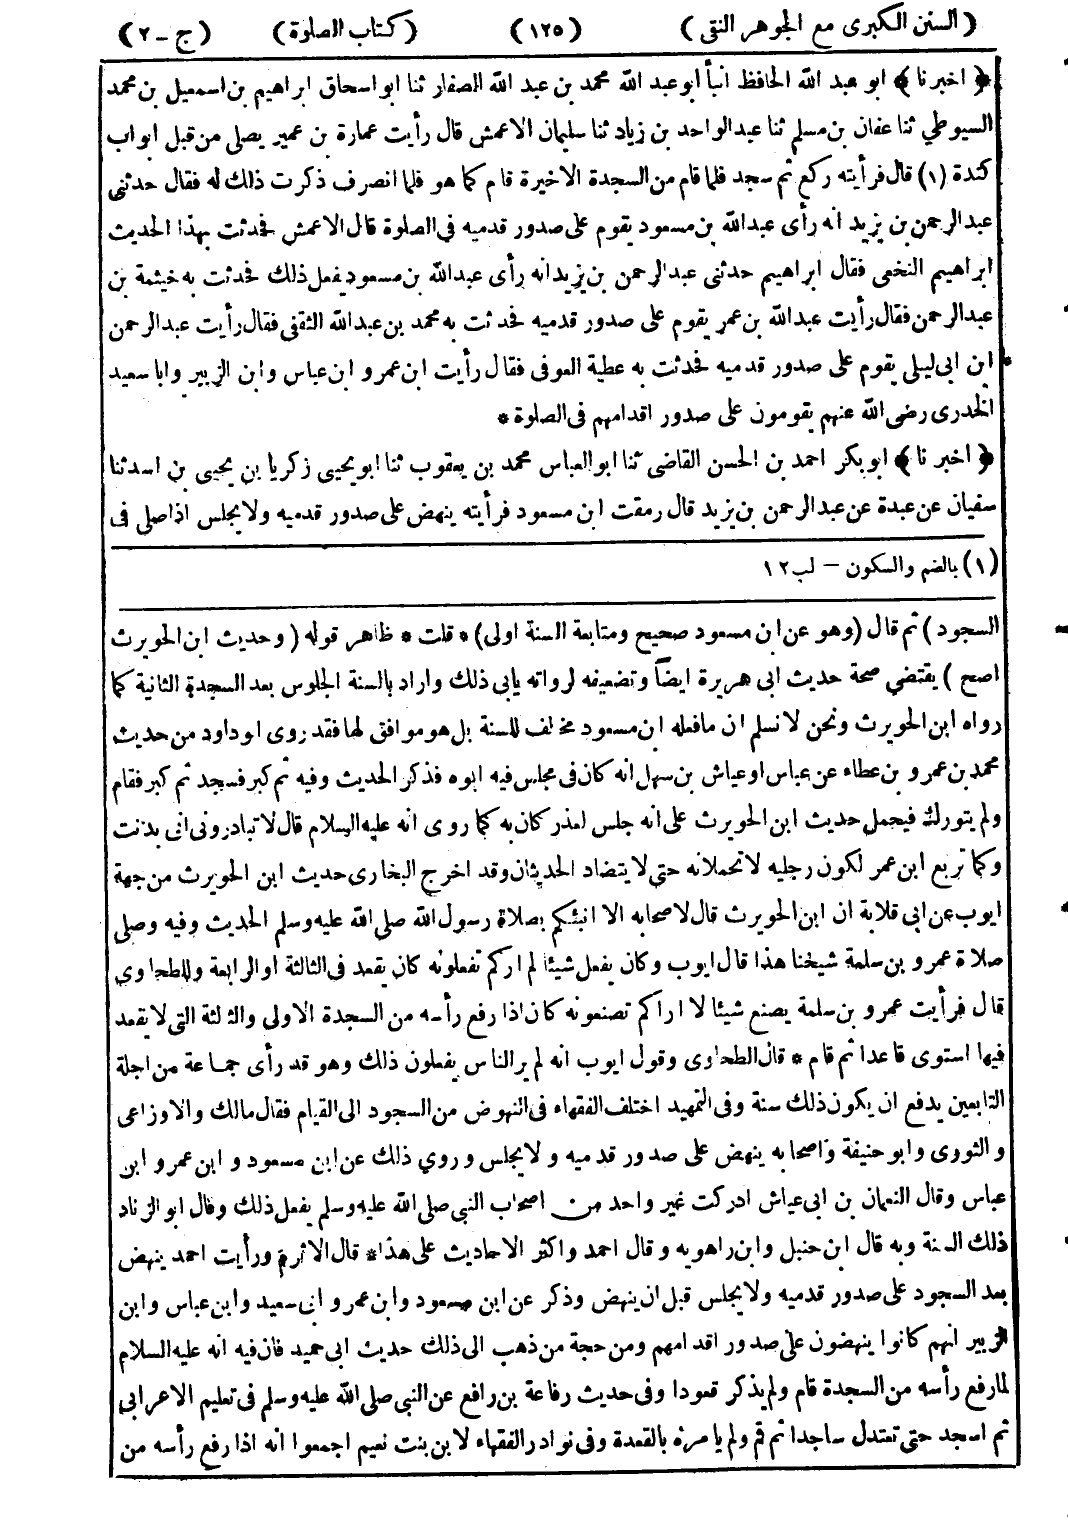 (السنن الكبرى مع الجوهر النقى) (١٢٥) (كتاب الصلوة) (ج - ٢)
﴿ اخبر نا ﴾ ابو عبد الله الحافظ انبأ أبو عبد الله محمد بن عبد الله الصفار ثنا ابو اسحاق ابراهيم بن اسمعيل بن محمد
السيوطي ثنا عفان بن مسلم ثنا عبد الواحد بن زياد ثنا سليمان الاعمش قال رأيت عمارة بن عمير يصلى من قبل ابواب
كندة (١) قال فرأيته ركع ثم سجد فلما قام من السجدة الاخيرة قام كما هو فلما انصرف ذكرت ذلك له فقال حدثنى
عبد الرحمن بن يزيد انه رأى عبد الله بن مسعود يقوم على صدور قدميه فى الصلوة قال الاعمش فحدثت بهذا الحديث
ابراهيم النخعى فقال ابراهيم حدثنى عبد الرحمن بن يزيد انه رأى عبد الله بن مسعود يفعل ذلك فحدثت به خيثمة بن
عبد الرحمن فقال رأيت عبد الله بن عمر يقوم على صدور قدميه فحدثت به محمد بن عبد الله الثقفى فقال رأيت عبد الرحمن
ابن ابى ليلى يقوم على صدور قدميه فحدثت به عطية العوفى فقال رأيت ابن عمر و ابن عباس وابن الزبير وابا سعيد
الخدرى رضى الله عنهم يقومون على صدور اقدامهم فى الصلوة *
﴿ اخبر نا ﴾ ابو بكر احمد بن الحسن القاضى ثنا ابو العباس محمد بن يعقوب ثنا ابو يحيى زكريا بن يحيى بن اسد ثنا
سفيان عن عبدة عن عبد الرحمن بن يزيد قال رمقت ابن مسعود فرأيته ينهض على صدور قدميه ولا يجلس اذا صلى فى
(١) بالضم والسكون - لب ١٢
السجود) ثم قال (وهو عن ابن مسعود صحيح ومتابعة السنة اولى) * قلت * ظاهر قوله (وحديث ابن الحويرث
اصح) يقتضى صحة حديث ابى هريرة ايضاً وتضعيفه لرواته يابى ذلك واراد بالسنة الجلوس بعد السجدة الثانية كما
رواه ابن الحويرث ونحن لا نسلم ان ما فعله ابن مسعود مخالف للسنة بل هو موافق لها فقد روى ابو داود من حديث
محمد بن عمرو بن عطاء عن عباس او عياش بن سهل انه كان فى مجلس فيه ابوه فذكر الحديث وفيه ثم كبر فسجد ثم كبر فقام
ولم يتورك فيحمل حديث ابن الحويرث على انه جلس لعذر كان به كما روى انه عليه السلام قال لا تبادرونى انى بدنت
وكما تربع ابن عمر لكون رجليه لا تحملانه حتى لا يتضاد الحديثان وقد اخرج البخارى حديث ابن الحويرث من جهة
ايوب عن ابى قلابة ان ابن الحويرث قال لاصحابه الا انبئكم بصلاة رسول الله صلى الله عليه وسلم الحديث وفيه وصلى
صلاة عمرو بن سلمة شيخنا هذا قال ايوب وكان يفعل شيئا لم اركم تفعلونه كان يقعد فى الثالثة او الرابعة وللطحاوى
قال فرأيت عمرو بن سلمة يصنع شيئا لا اراكم تصنعونه كان اذا رفع رأسه من السجدة الاولى والثالثة التى لا يقعد
فيها استوى قاعدا ثم قام * قال الطحاوى وقول ايوب انه لم ير الناس يفعلون ذلك وهو قد رأى جماعة من اجلة
التابعين يدفع ان يكون ذلك سنة وفى التمهيد اختلف الفقهاء فى النهوض من السجود الى القيام فقال مالك والاوزاعى
والثورى وابو حنيفة واصحابه ينهض على صدور قدميه ولا يجلس وروي ذلك عن ابن مسعود و ابن عمر و ابن
عباس وقال النعمان بن ابى عياش ادركت غير واحد من اصحاب النبى صلى الله عليه وسلم يفعل ذلك وقال ابو الزناد
ذلك السنة وبه قال ابن حنبل وابن راهويه و قال احمد واكثر الاحاديث على هذا * قال الاثرم ورأيت احمد ينهض
بعد السجود على صدور قدميه ولا يجلس قبل ان ينهض وذكر عن ابن مسعود وابن عمر و ابى سعيد وابن عباس وابن
الزبير انهم كانوا ينهضون على صدور اقدامهم ومن حجة من ذهب الى ذلك حديث ابى حميد فان فيه انه عليه السلام
لما رفع رأسه من السجدة قام ولم يذكر قعودا وفى حديث رفاعة بن رافع عن النبى صلى الله عليه وسلم فى تعليم الاعرابى
ثم اسجد حتى تعتدل ساجدا ثم قم ولم يامره بالقعدة وفى نوادر الفقهاء لابن بنت نعيم اجمعوا انه اذا رفع رأسه من